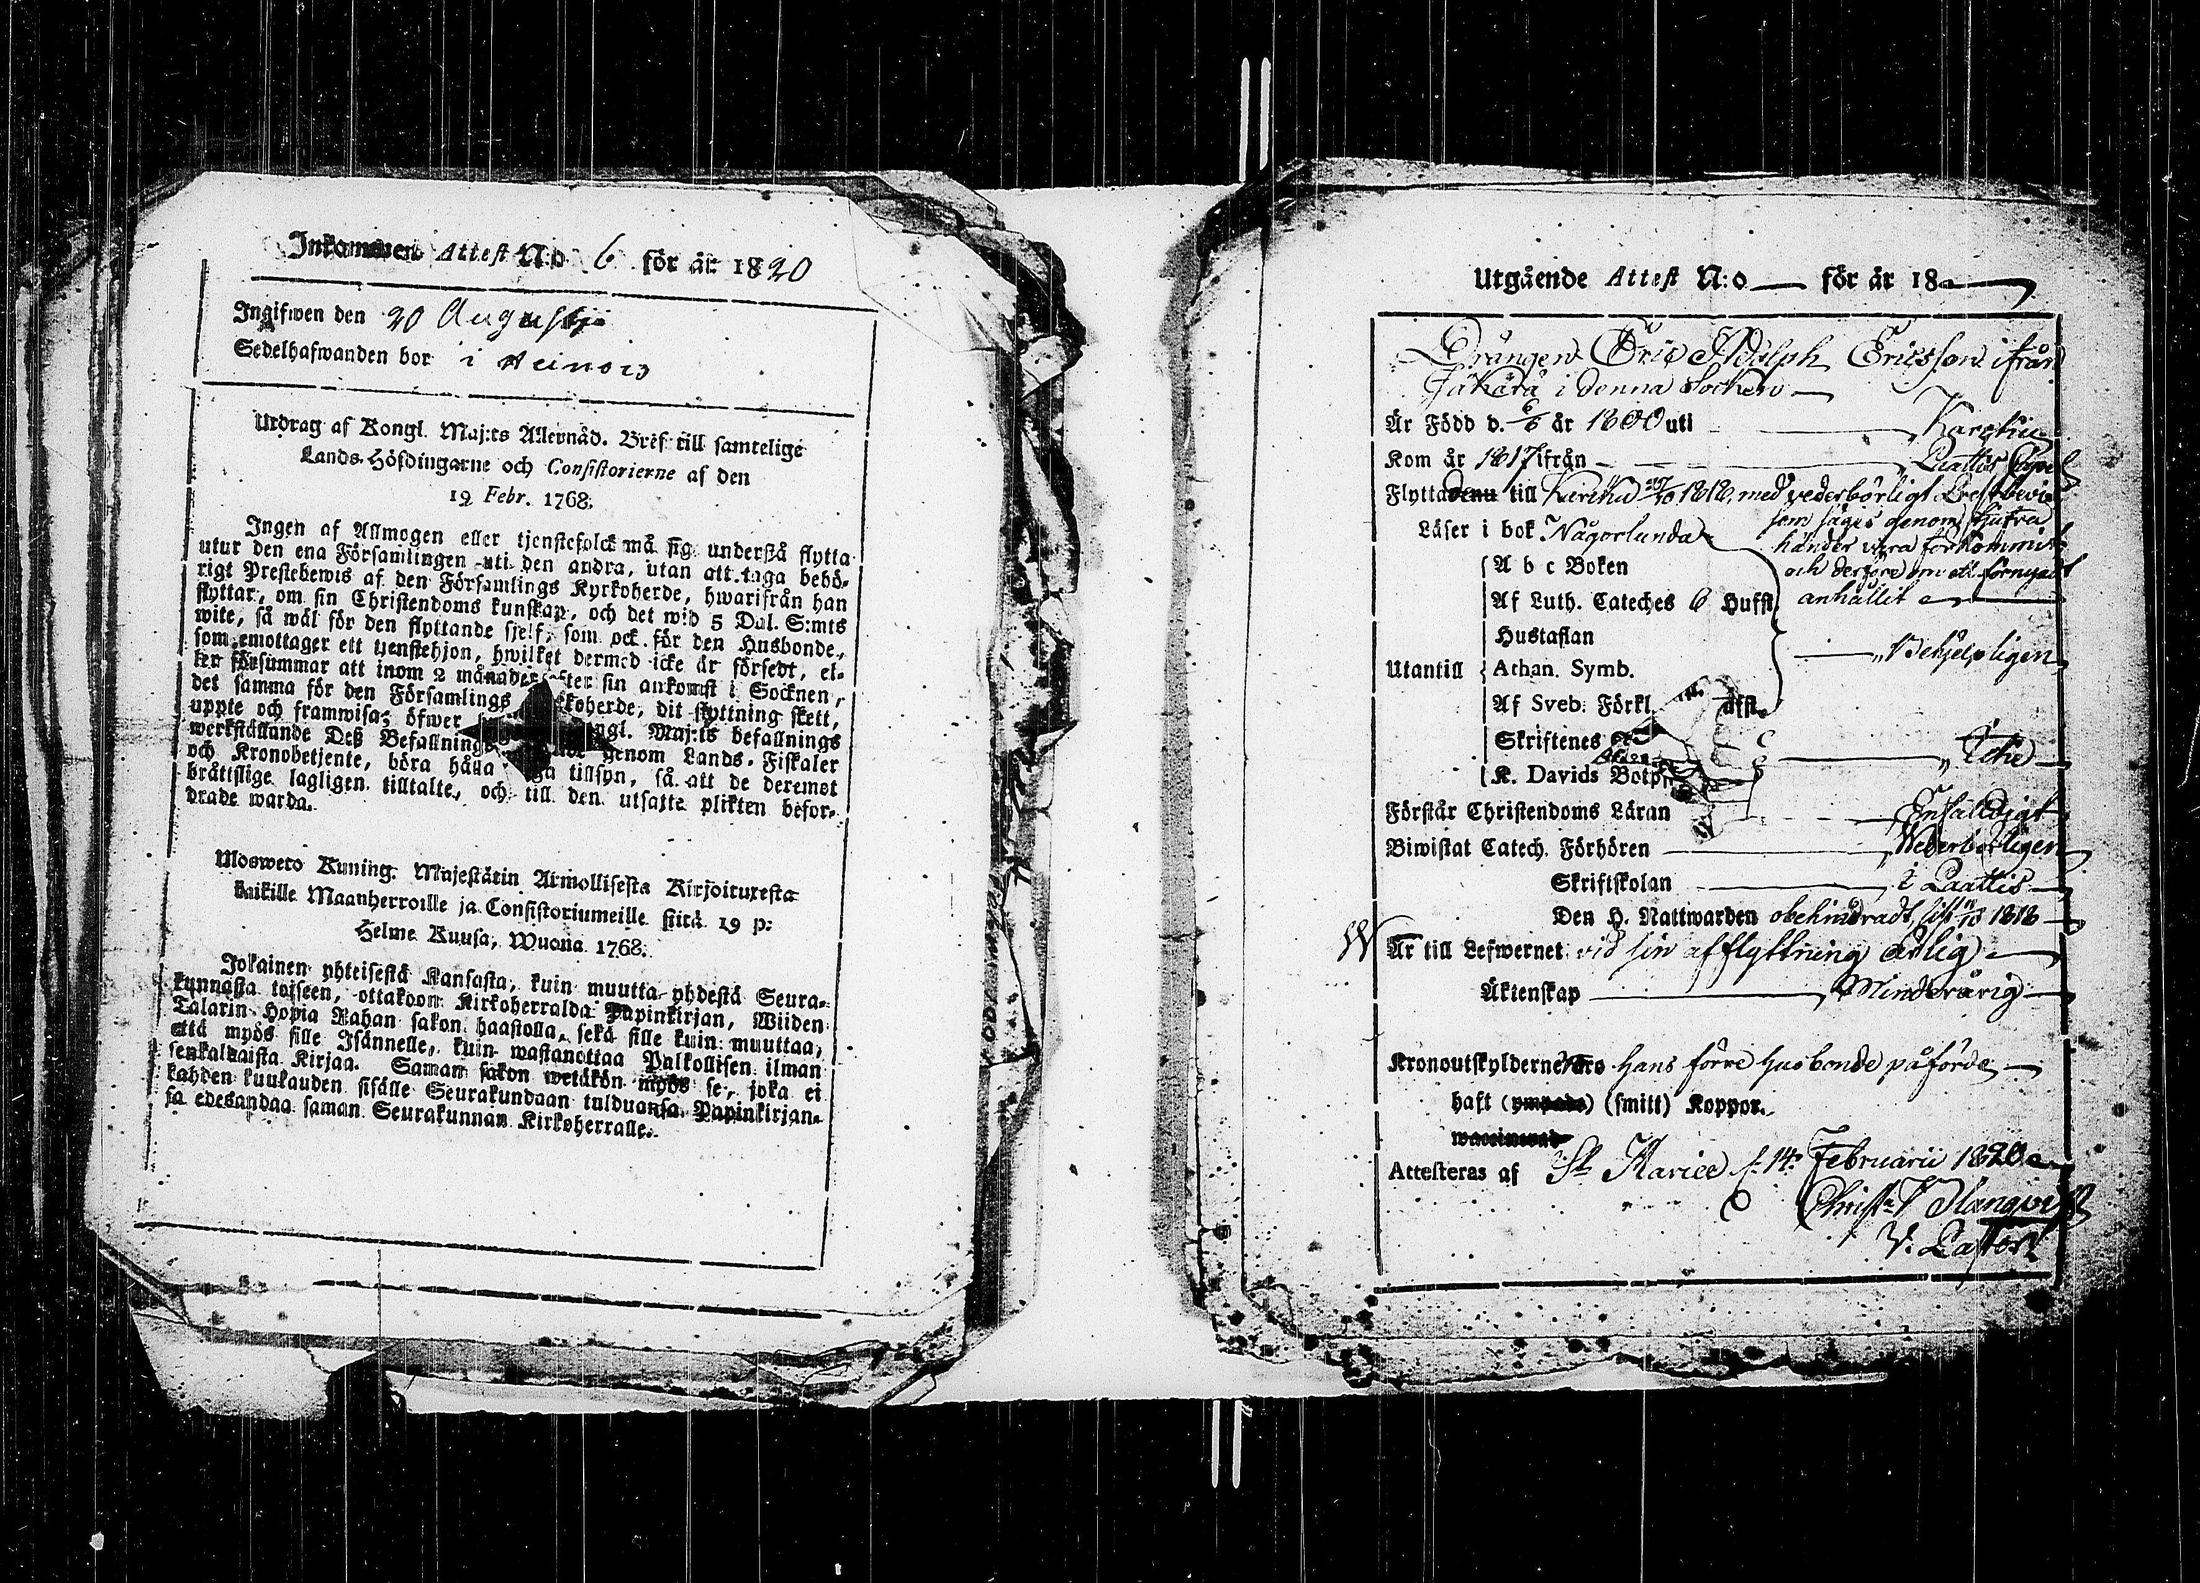 Inkommen Attest N:o 6 för år 1820
Ingifwen den 20 Augusti
Sedelhafwanden bor i Heinois
Utdrag af Kongl. Maj:ts Allernåd. Bref till samtelige
Lands-Höfdingarne och Consistorierne af den
19 Febr. 1768.
Ingen af Allmogen eller tjenstefolck må sig understå flytta
utur den ena Församlingen uti den andra, utan att taga behö-
rigt Prestebewis af den Församlings Kyrkoherde, hwarifrån han
flyttar, om sin Christendoms kunskap, och det wid 5 Dal. S:mts
wite, så wäl för den flyttande sjelf, som ock för den Husbonde,
som emottager ett tjenstehjon, hwilket dermed icke är försedt, el-
ler försummar att inom 2 månader efter sin ankomst i Socknen,
det samma för den Församlings Kyrkoherde, dit flyttning skett,
uppte och framwisa; öfwer Kongl. Maj:ts befallnings
werkställande Deß Befallnings genom Lands-Fiskaler
och Kronobetjente, böra hålla noga tillsyn, så att de deremot
bråttslige lagligen tilltalte, och till den utsatte plikten befor-
drade warda.
Mosweto Kuning. Majestätin Armollisesta Kirjoituxesta
kaikille Maanherroille ja Consistoriumeille siitä 19 p:
Helme Kuusa, Wuona 1768.
Jokainen yhteisestä Kansasta, kuin muutta yhdestä Seura-
kunnasta toiseen, ottakoon Kirkoherralda Papinkirjan, Wiiden
Talarin Hopia Rahan sakon haastolla, sekä sille kuin muuttaa,
että myös sille Isännelle, kuin wastanottaa Palkollisen ilman
senkaltaista Kirjaa. Saman sakon wetäkön myös se, joka ei
kahden kuukauden sisälle Seurakundaan tulduansa Papinkirjan-
sa edesandaa saman Seurakunnan Kirkoherralle.
Utgående Attest N:o — för år 18
Drängen Eric Adolph Ericsson ifrån
Jäkärä i denna Socken
Är Född d. 6/6 år 1800 uti Karstu
Kom år 1817 ifrån Paattis Capel
Flyttade till 1818, med vederbörligt Prestbevis
som sägis genom tjufva
Läser i bok Någorlunda
händer vara förkommit
A b c Boken
och derföre om ett förnyadt
Af Luth. Cateches 6 Hufst.
anhållit
Hustaflan
Utantill Athan. Symb. Behjelpligen
Af Sveb. Förkl.
Skriftenes
Icke
K. Davids Botps
Förstår Christendoms Läran Enfaldigt
Biwistat Catech. Förhören Wederbörligen
Skriftskolan i Paattis
Den H. Nattwarden obehindradt, sist 1818
Är till Lefwernet vid sin afflyttning ärlig
Äktenskap Minderårig
Kronoutskylderne hans förre husbonde påförde
haft (ympade) (smitt) Koppor.
Attesteras af St Mariæ d. 14 Februarii 1820
V. Pastor